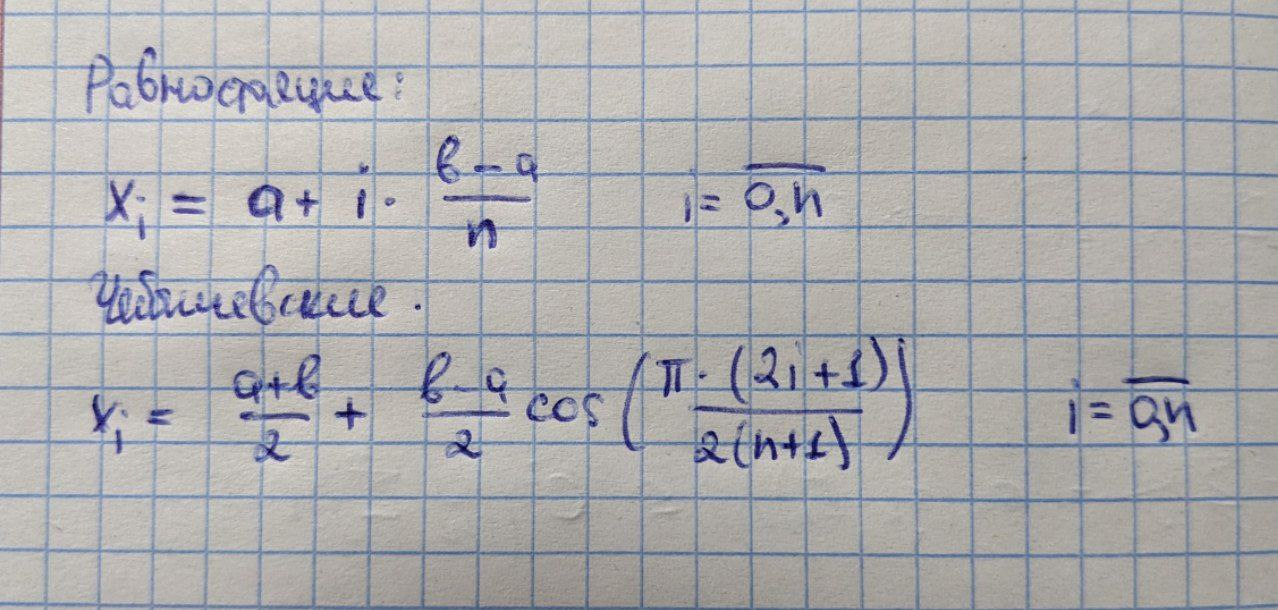 Равностоящие:
xᵢ = a + i · (b − a)/n    i = \overline{0,n}
Чебышевские.
xᵢ = (a+b)/2 + (b−a)/2 cos(π · (2i+1)/2(n+1))    i = \overline{0,n}